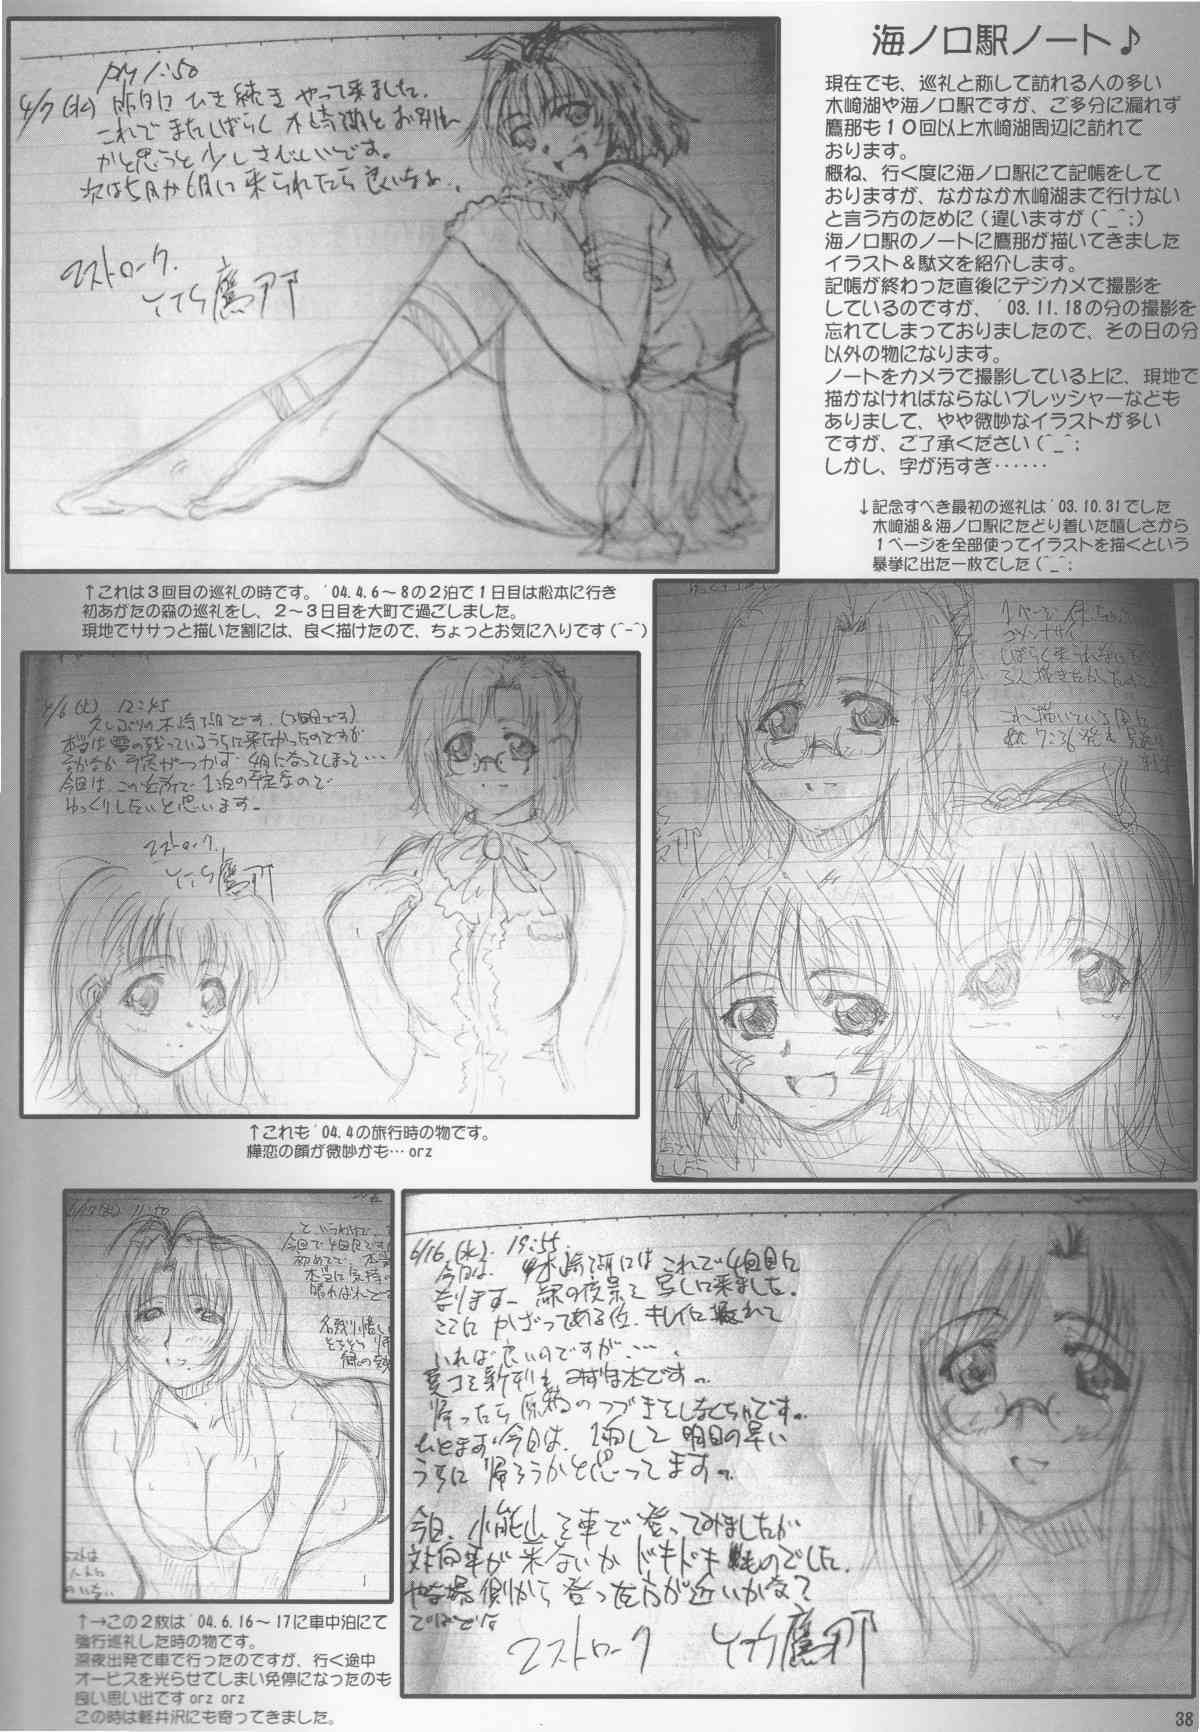 海ノ口駅ノート♪
現在でも、巡礼と称して訪れる人の多い
木崎湖や海ノ口駅ですが、ご多分に漏れず
鷹那も10回以上木崎湖周辺に訪れて
おります。
概ね、行く度に海ノ口駅にて記帳をして
おりますが、なかなか木崎湖まで行けない
と言う方のために(違いますが(^_^;)
海ノ口駅のノートに鷹那が描いてきました
イラスト&駄文を紹介します。
記帳が終わった直後にデジカメで撮影を
しているのですが、'03.11.18の分の撮影を
忘れてしまっておりましたので、その日の分
以外の物になります。
ノートをカメラで撮影している上に、現地で
描かなければならないプレッシャーなども
ありまして、やや微妙なイラストが多い
ですが、ご了承ください(^_^;
しかし、字が汚すぎ……
↓記念すべき最初の巡礼は'03.10.31でした
木崎湖&海ノ口駅にたどり着いた嬉しさから
1ページを全部使ってイラストを描くという
暴挙に出た一枚でした(^_^;
PM 1:50
4/7(水) 昨日に ひき続き やって来ました。
これで またしばらく 木崎湖と お別れ
かと思うと 少し さむしいです。
次は5月か6月に 来られたら 良いなぁ..
マストローク.
鷹那
↑これは3回目の巡礼の時です。'04.4.6～8の2泊で1日目は松本に行き
初あがたの森の巡礼をし、2～3日目を大町で過ごしました。
現地でササっと描いた割には、良く描けたので、ちょっとお気に入りです(^-^)
4/6(火) 12:45
久しぶりの木崎湖です。(3回目です)
本当は雪の残っているうちに来たかったのですが
なかなか予定がつかず 4月になってしまって…
今回は、この近所で 1泊の予定なので
ゆっくりしたいと思います。
マストローク.
鷹那
↑これも'04.4の旅行時の物です。
樺恋の顔が微妙かも…orz
6/17(木) 11:50
というわけで
今回で4回目です
初めてで
本当に気持
晴ればれと
名残り惜し
そろそろ
6/16.(水). 19:55
今日は、木崎湖には これで 4回目に
なります。 緑の夜景を 写しに来ました。
ここに かざってある位、キレイに撮れて
いれば良いのですが….
夏コミ新刊も みずほ本です。
帰ったら 原稿の つづきをしなくちゃです。
ひとまず 今日は、1泊して 明日の早い
うちに 帰ろうかと思ってます。
今日、小熊山を車で 登ってみましたが
対向車が 来ないか ドキドキ ものでした。
側から 登った方が近いかな?
ではでは
マストローク 鷹那
↑→この2枚は'04.6.16～17に車中泊にて
強行巡礼した時の物です。
深夜出発で車で行ったのですが、行く途中
オービスを光らせてしまい免停になったのも
良い思い出ですorz orz
この時は軽井沢にも寄ってきました。
38